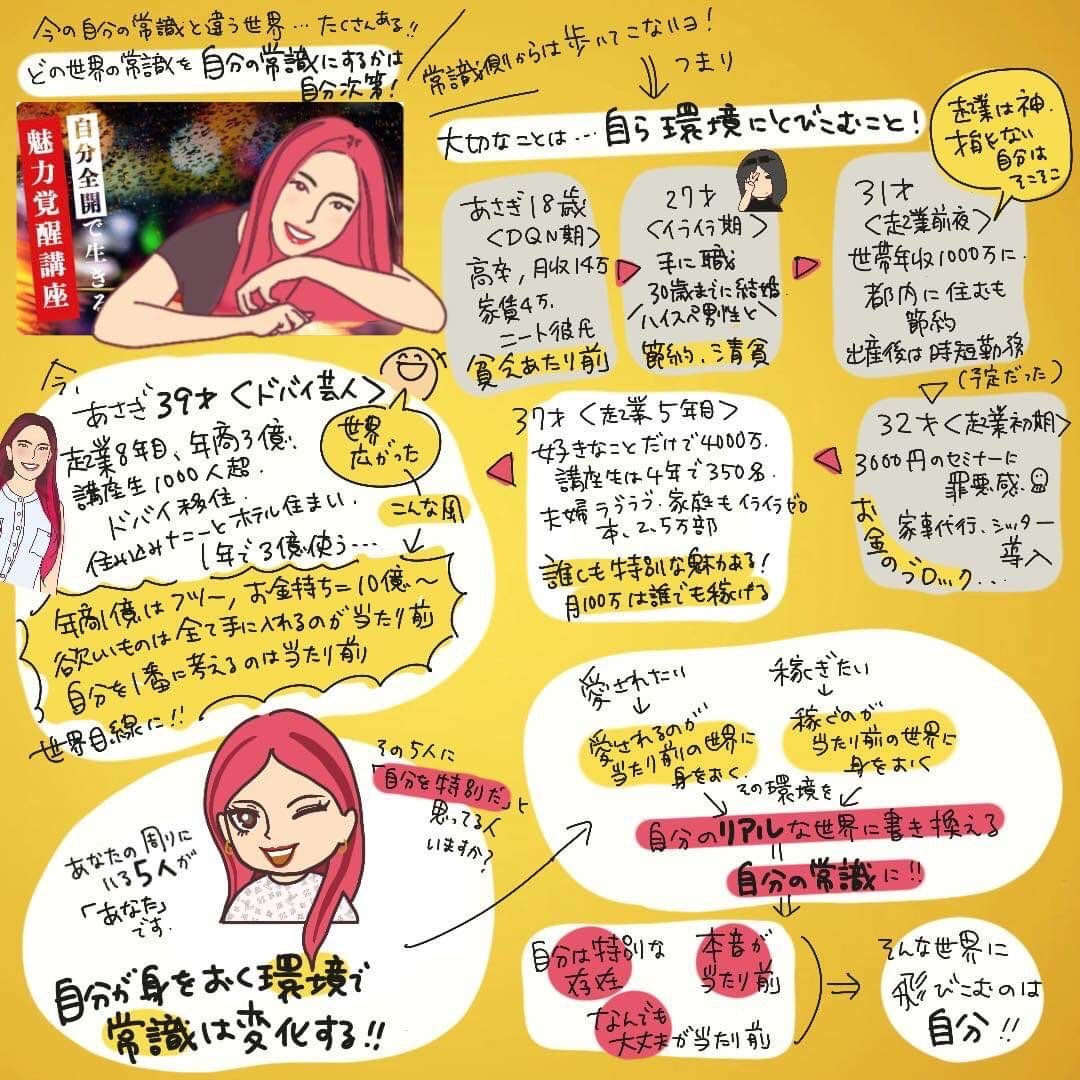 今の自分の常識と違う世界…たくさんある!!
どの世界の常識を自分の常識にするかは
自分次第!
常識側からは歩いてこないヨ!
つまり
大切なことは…自ら環境にとびこむこと!
自分全開で生きる
魅力覚醒講座
あさぎ18歳
<DQN期>
高卒,月収14万
家賃4万.
ニート彼氏
貧乏あたり前
27才
<イライラ期>
手に職
30歳までに結婚.
ハイスペ男性と
節約、清貧
起業は神.
才能ない
自分は
そこそこ
31才
<起業前夜>
世帯年収1000万に.
都内に住むも
節約
出産後は時短勤務
(予定だった)
32才<起業初期>
3000円のセミナーに
罪悪感.
家事代行、シッター
導入
お金のブロック...
37才<起業5年目>
好きなことだけで4000万.
講座生は4年で350名.
夫婦ラブラブ.家庭もイライラゼロ
本、2.5万部
誰しも特別な魅力がある!
月100万は誰でも稼げる
今,
あさぎ39才<ドバイ芸人>
起業8年目、年商3億.
講座生1000人超.
ドバイ移住.
住み込みナニーとホテル住まい.
1年で3億使う...
世界
広がった
こんな風
年商1億はフツー,お金持ち=10億〜
欲しいものは全て手に入れるのが当たり前
自分を1番に考えるのは当たり前
世界目線に!!
あなたの周りに
いる5人が
「あなた」
です.
その5人に
「自分を特別だ」と
思ってる人
いますか?
自分が身をおく環境で
常識は変化する!!
愛されたい
愛されるのが
当たり前の世界に
身をおく.
稼ぎたい
稼ぐのが
当たり前の世界に
身をおく
その環境を
自分のリアルな世界に書き換える
自分の常識に!!
自分は特別な
存在
本音が
当たり前
なんでも
大丈夫が当たり前
そんな世界に
飛びこむのは
自分!!